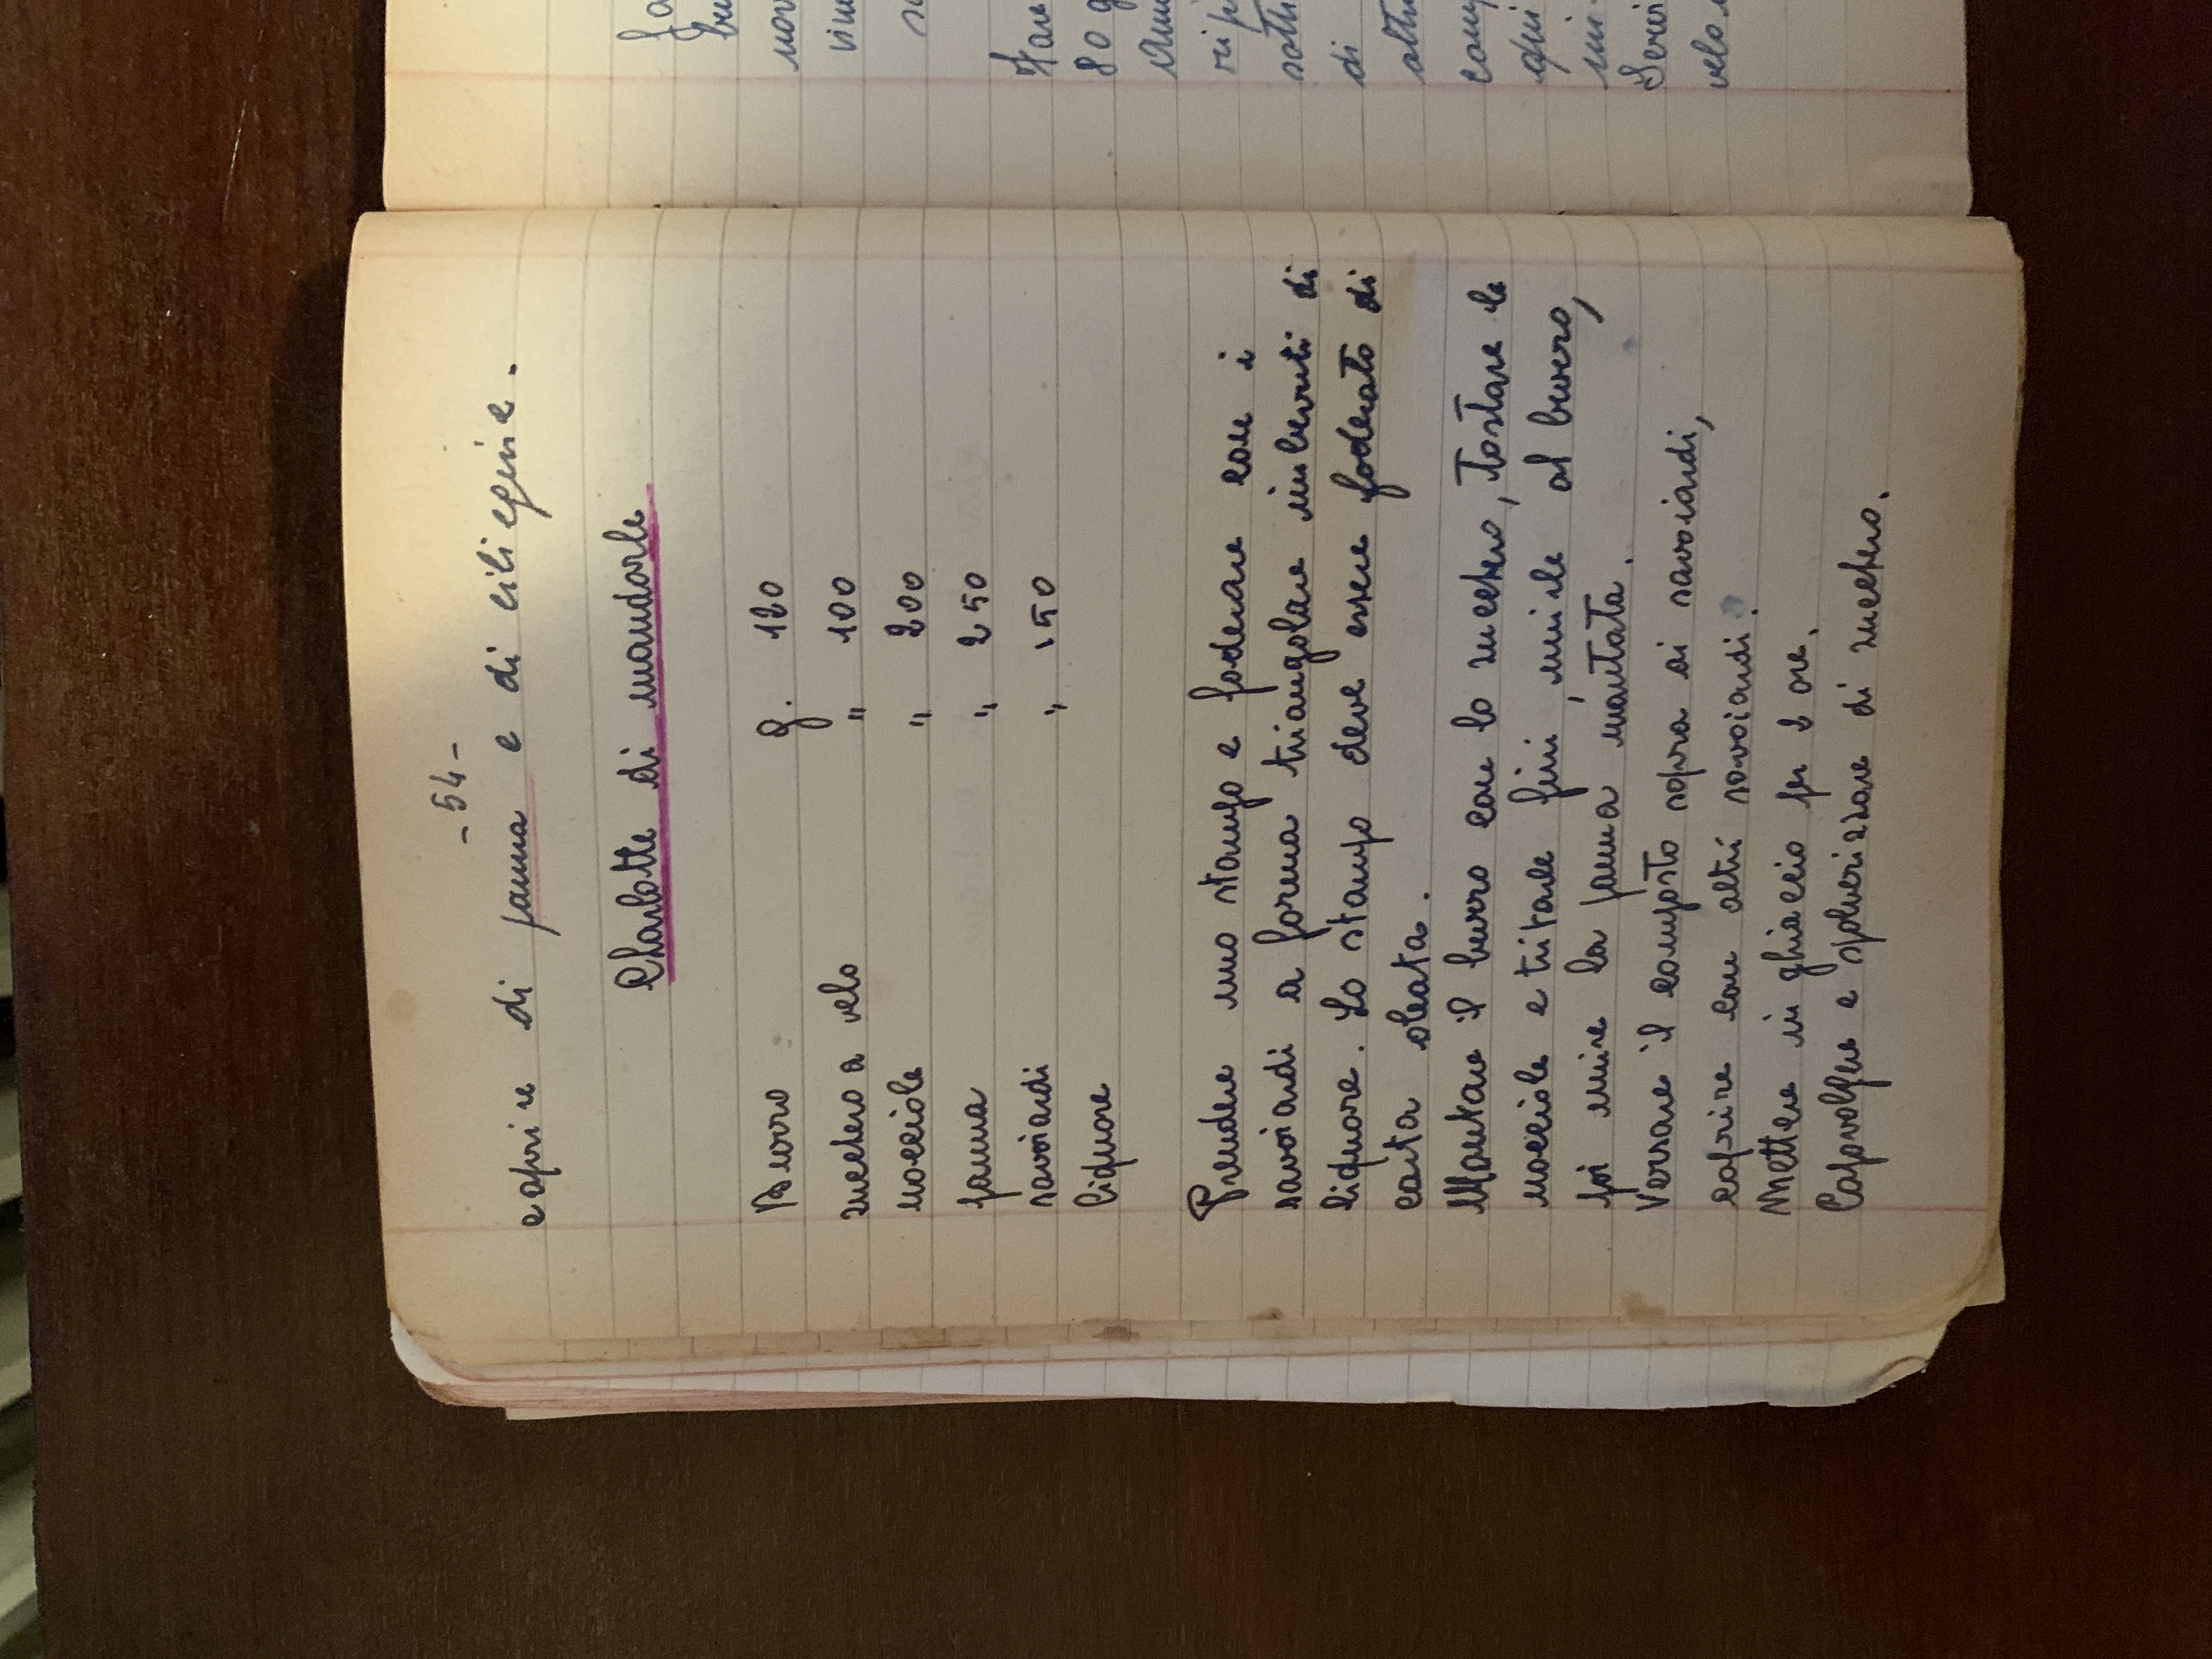 - 54 -
coprire di panna e di ciliegine.
Charlotte di mandorle
Burro g. 120
zucchero a velo " 100
nocciole " 200
panna " 250
savoiardi " 150
liquore
Prendere uno stampo e foderare con i
savoiardi a forma triangolare imbevuti di
liquore. Lo stampo deve essere foderato di
carta oleata.
Montare il burro con lo zucchero, tostare le
nocciole e tritarle fini, unirle al burro,
poi unire la panna montata.
Versare il composto sopra ai savoiardi,
coprire con altri savoiardi.
Mettere in ghiaccio per 2 ore.
Capovolgere e spolverizzare di zucchero.
80 g
di
velo